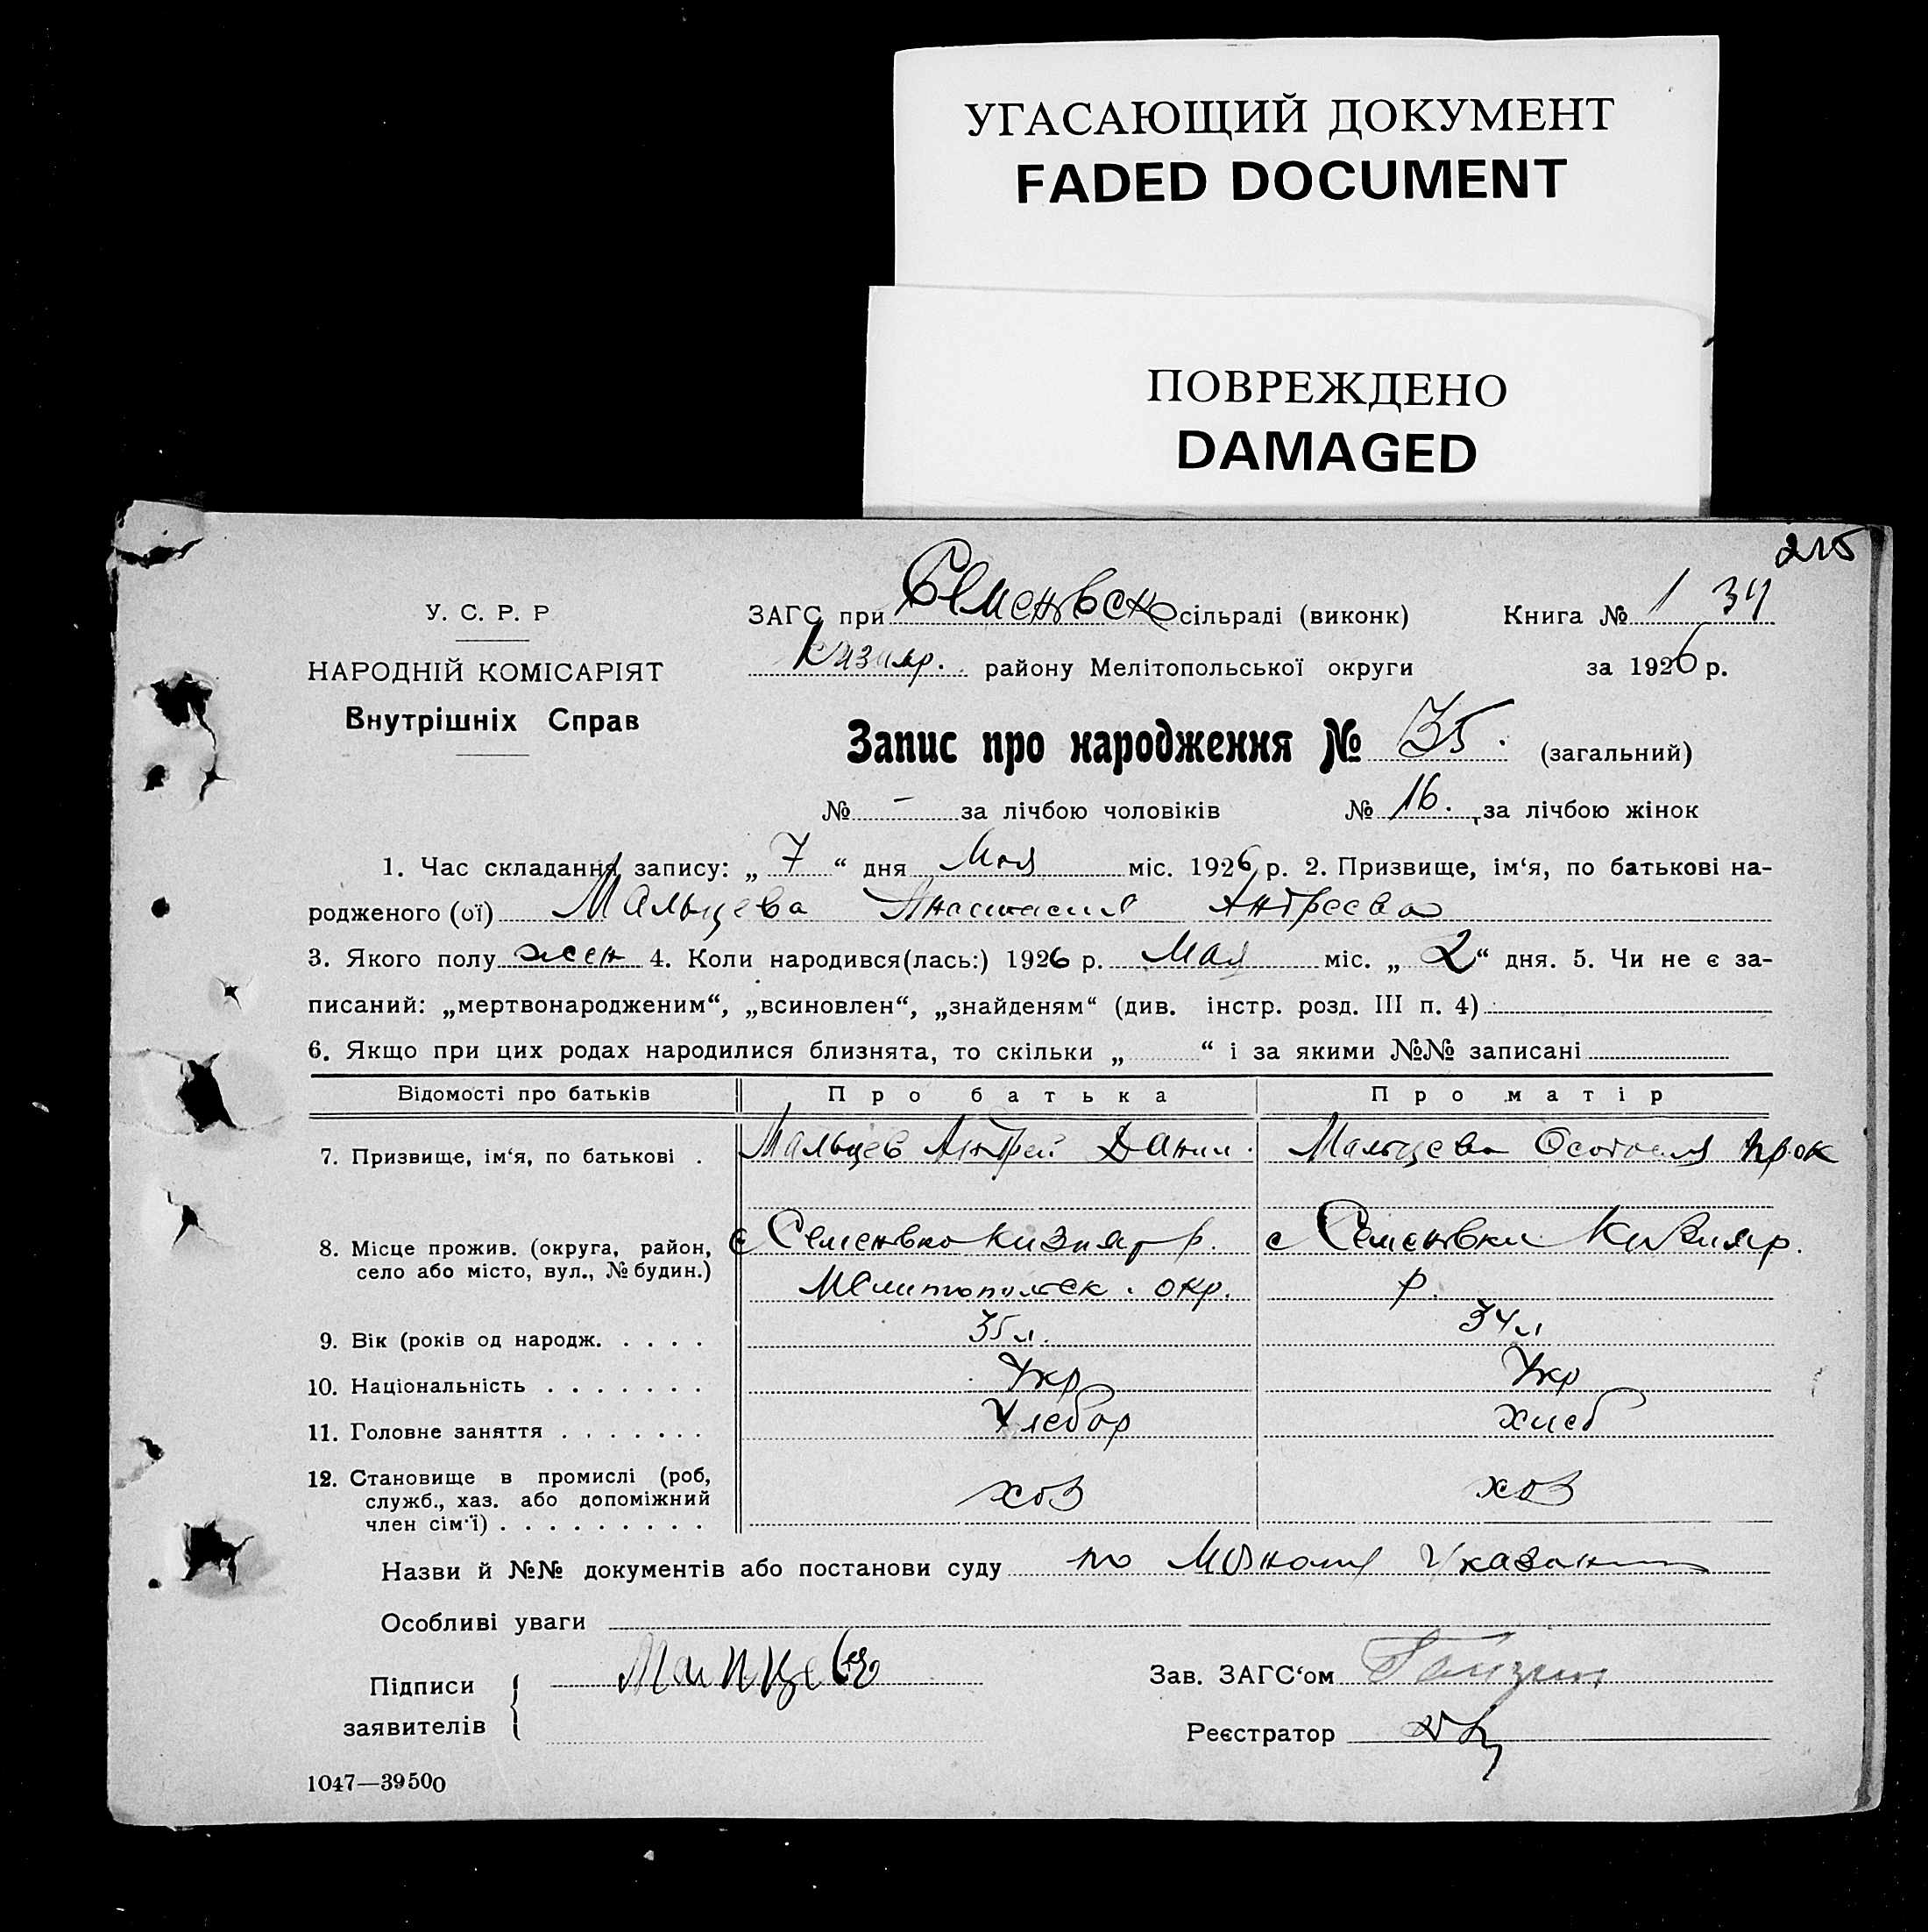 УГАСАЮЩИЙ ДОКУМЕНТ
FADED DOCUMENT
ПОВРЕЖДЕНО
DAMAGED
215
У. С. Р. Р
НАРОДНІЙ КОМІСАРІЯТ
Внутрішніх Справ
ЗАГС при Семеновско сільраді (виконк) Книга № 1 34
Кизияр. району Мелітопольської округи за 1926 р.
Запис про народження № 35. (загальний)
№ – за лічбою чоловіків № 16. за лічбою жінок
1. Час складання запису: „ 7 “ дня Мая міс. 1926 р. 2. Призвище, ім‘я, по батькові на-
родженого (ої) Мальцева Анастасия Андреева
3. Якого полу жен 4. Коли народився(лась:) 1926 р. Мая міс. „ 2 “ дня. 5. Чи не є за-
писаний: „мертвонародженим“, „всиновлен“, „знайденям“ (див. інстр. розд. III п. 4)
6. Якщо при цих родах народилися близнята, то скільки „ “ і за якими №№ записані
Відомості про батьків Про батька Про матір
7. Призвище, ім‘я, по батькові . Мальцев Андрей Данил. Мальцева Прок
8. Місце прожив. (округа, район, с Семеновка Кизияр р. с Семеновки Кизияр.
село або місто, вул., № будин.) Мелитопольск. окр. р.
9. Вік (років од народж. . . . . 35 л. 34 л
10. Національність . . . . . . . Укр Укр
11. Головне заняття . . . . . . . Хлебор хлеб
12. Становище в промислі (роб, хоз хоз
служб., хаз. або допоміжний
член сім‘ї) . . . . . . . . .
Назви й №№ документів або постанови суду по Указан
Особливі уваги
Підписи Мальцев Зав. ЗАГС‘ом
заявителів Реєстратор
1047—39500